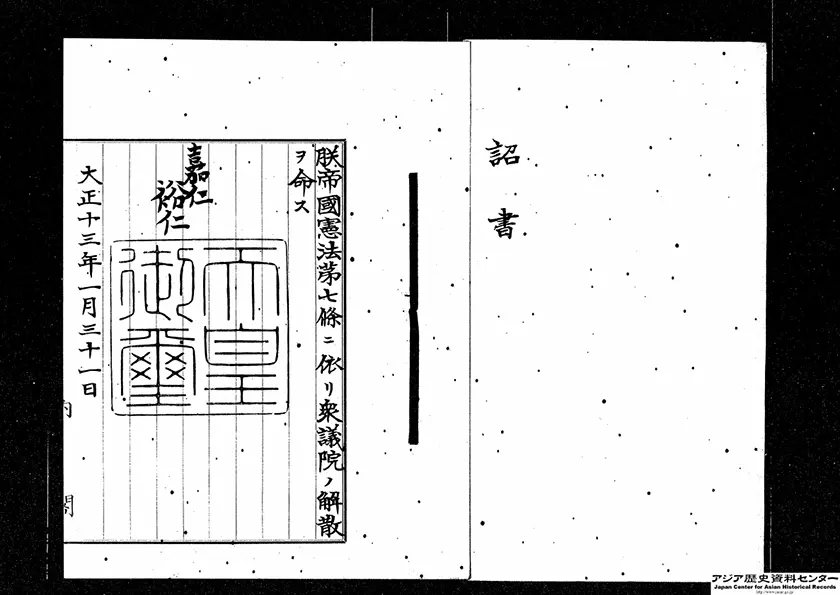 詔書
朕帝國憲法第七條ニ依リ衆議院ノ解散
ヲ命ス
嘉仁
裕仁
天皇
御璽
大正十三年一月三十一日
内閣
アジア歴史資料センター
Japan Center for Asian Historical Records
http://www.jacar.go.jp/